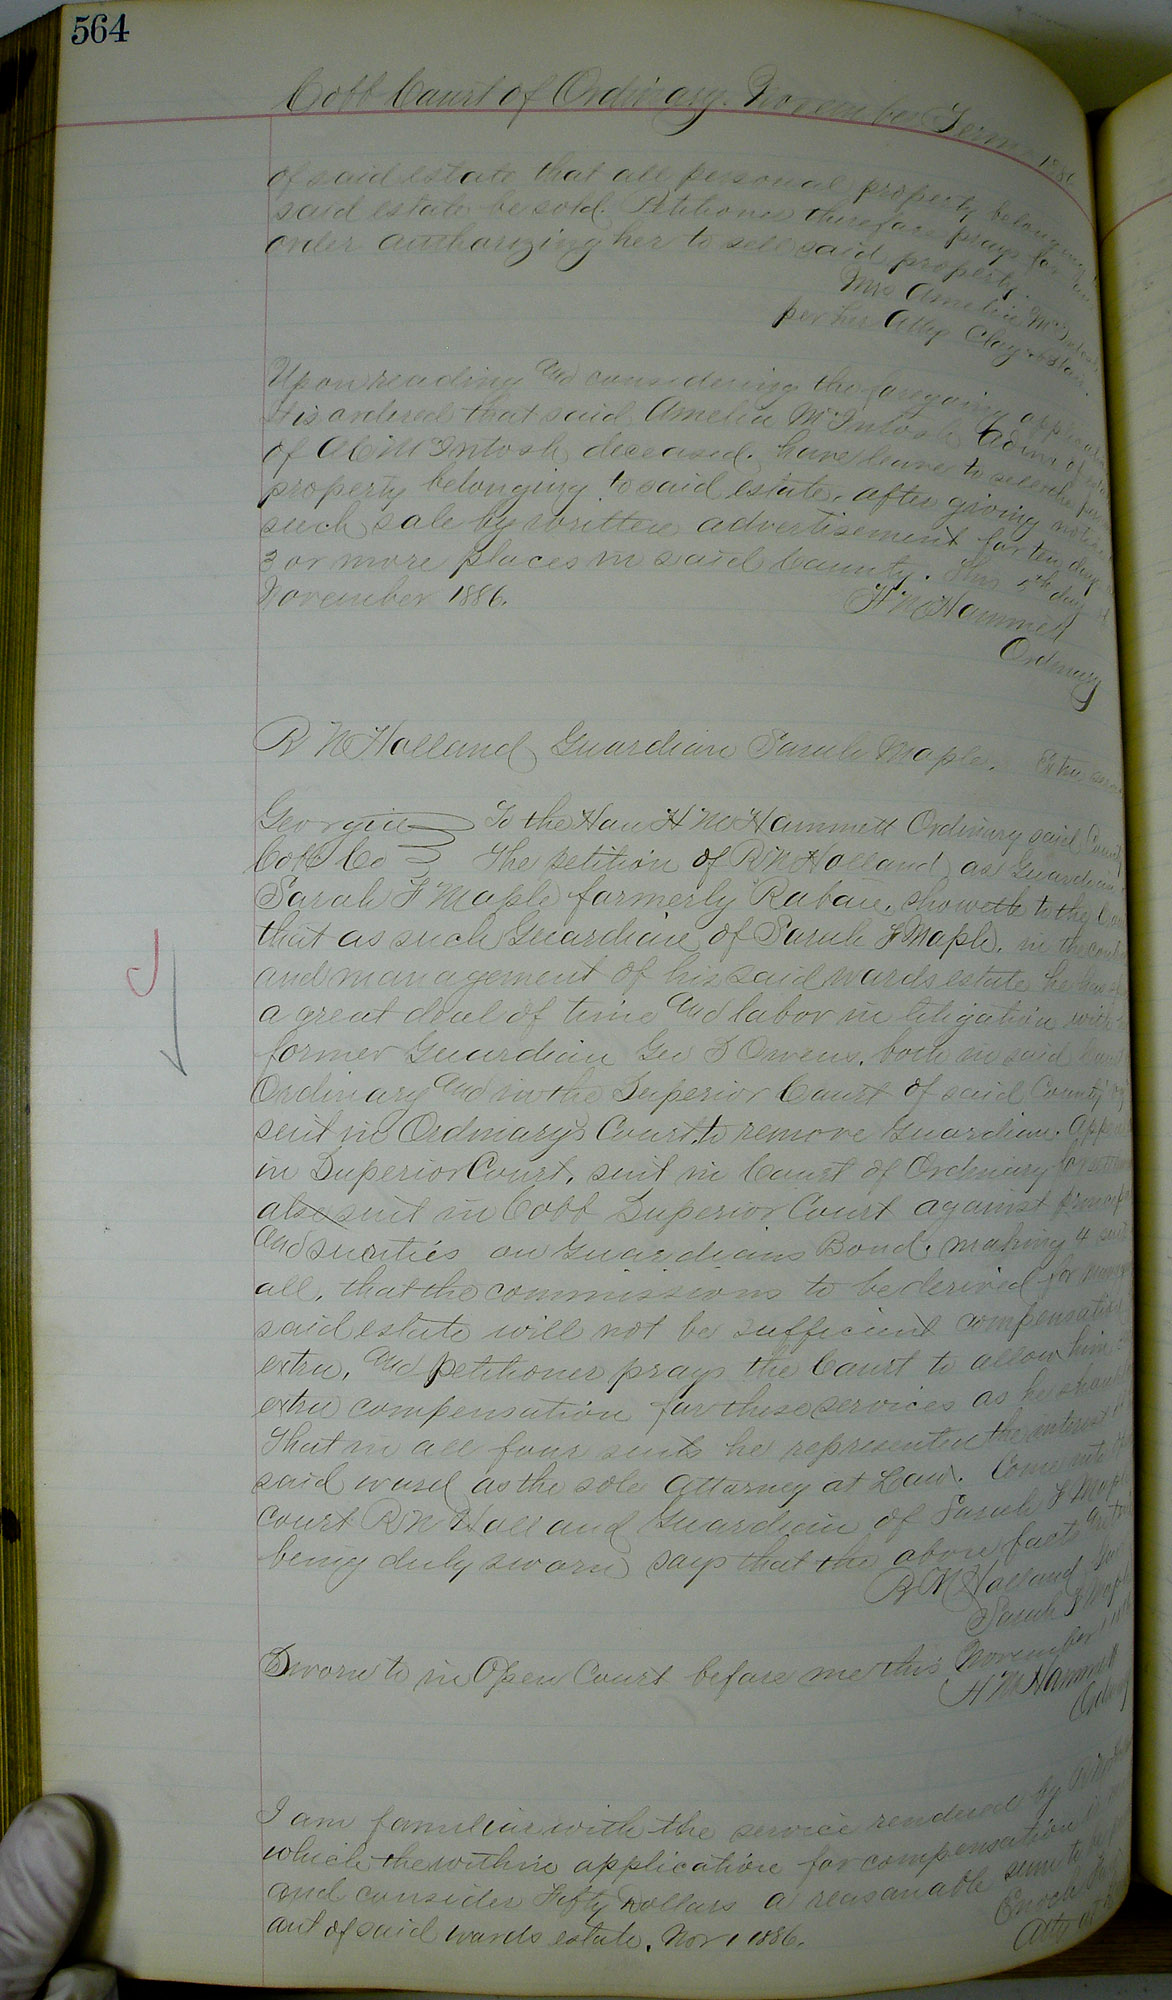 564
Cobb Court of Ordinary. November Term 1886
of said estate that all personal property belonging
said estate be sold. Petitioner therefore prays for an
order authorizing her to sell said property.
Mrs Amelia McIntosh
per her Atty Clay & Blair.
Upon reading and considering the foregoing application
it is ordered that said Amelia McIntosh Admx of estate
of McIntosh deceased. have leave to sell the
property belonging to said estate, after giving notice
such sale by written advertisement for ten days
3 or more places in said County. This 5th day of
November 1886.
H M Hammett
Ordinary
R N Holland Guardian Sarah Maple. Extra
Georgia To the Hon H M Hammett Ordinary said County
Cobb Co The petition of R N Holland as Guardian
Sarah F Maple formerly Raban, showeth to the
that as such Guardian of Sarah F Maple, in the
and management of his said wards estate he has
a great deal of time and labor in litigation with
former Guardian Geo D Owens, both in said
Ordinary and in the Superior Court of said County
suit in Ordinary's Court to remove Guardian. Appeal
in Superior Court, suit in Court of Ordinary for
also suit in Cobb Superior Court against
and sureties on Guardians Bond, making 4
all, that the commissions to be derived for
said estate will not be sufficient compensation
extra, and petitioner prays the Court to allow him
extra compensation for these services as he
That in all four suits he represented the interest
said ward as the sole Attorney at Law. Comes into
court R N Holland Guardian of Sarah F Maple
being duly sworn says that the above facts are true
R N Holland
Sarah F Maple
Sworn to in Open Court before me this November 1
H M Hammett
Ordinary
I am familiar with the service rendered by
which the within application for compensation
and consider Fifty Dollars a reasonable sum to be
out of said wards estate. Nov 1 1886.
Enoch
Atty at